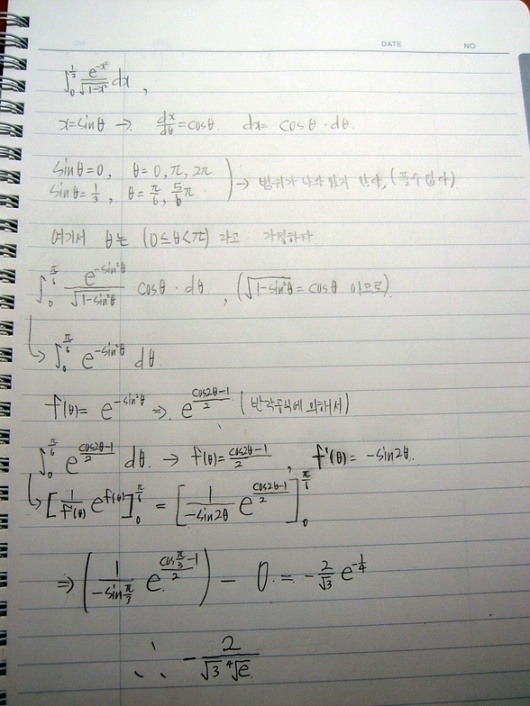 DATE NO
∫₀^{1/2} e^{-x²}/√(1-x²) dx ,
x=sinθ → dx/dθ=cosθ. dx= cosθ·dθ.
sinθ=0, θ=0,π,2π
sinθ=1/2, θ=π/6, 5/6π → 범위가 나와 있지 않다, (풀수 없다)
여기서 θ는 (0≤θ<π) 라고 가정하자
∫₀^{π/6} e^{-sin²θ}/√(1-sin²θ) cosθ·dθ , (√(1-sin²θ)=cosθ 이므로)
↳ ∫₀^{π/6} e^{-sin²θ} dθ
f(θ)= e^{-sin²θ} ⇒ e^{(cos2θ-1)/2} (반각공식에 의해서)
∫₀^{π/6} e^{(cos2θ-1)/2} dθ. → f(θ)=(cos2θ-1)/2, f'(θ)= -sin2θ.
↳ [1/f'(θ) e^{f(θ)}]₀^{π/6} = [1/(-sin2θ) e^{(cos2θ-1)/2}]₀^{π/6}
⇒ (1/(-sin π/3) e^{(cos π/3 -1)/2}) - 0. = -2/√3 e^{-1/4}
∴ -2/(√3 ⁴√e)